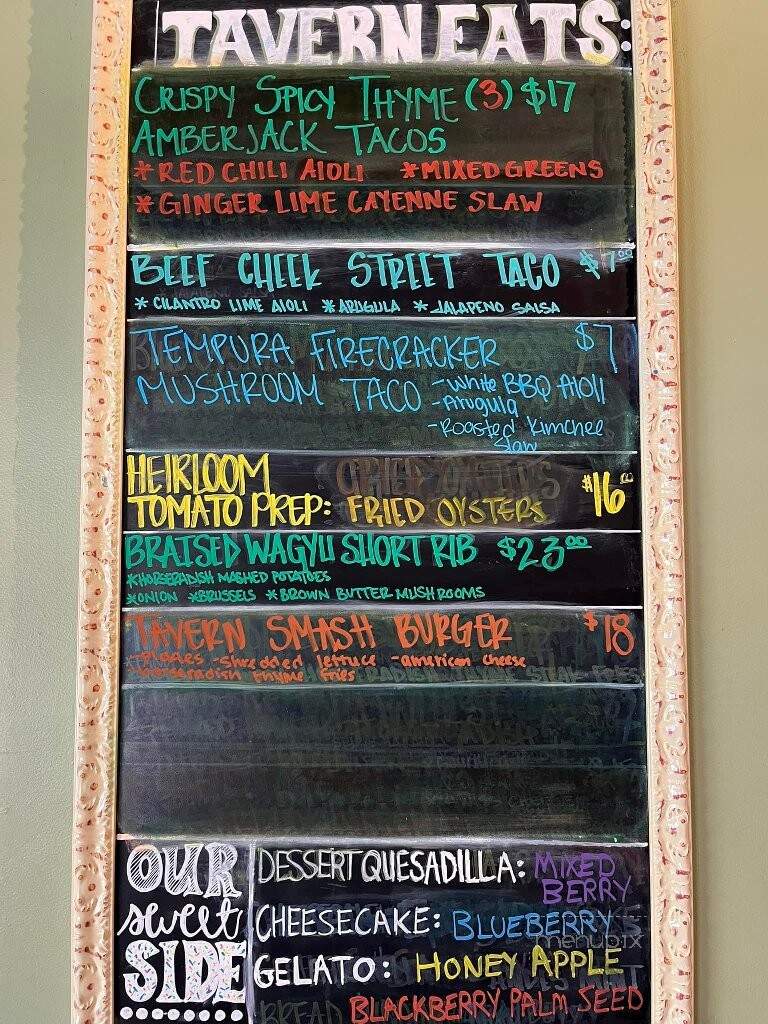 TAVERN EATS:
CRISPY SPICY THYME (3) $17
AMBERJACK TACOS
*RED CHILI AIOLI *MIXED GREENS
*GINGER LIME CAYENNE SLAW
BEEF CHEEK STREET TACO $7.00
*CILANTRO LIME AIOLI *ARUGULA *JALAPENO SALSA
TEMPURA FIRECRACKER $7
MUSHROOM TACO -White BBQ AIOLI
-Arugula
-Roasted Kimchee
Slaw
HEIRLOOM
TOMATO PREP: FRIED OYSTERS $16.00
BRAISED WAGYU SHORT RIB $23.00
*HORSERADISH MASHED POTATOES
*ONION *BRUSSELS *BROWN BUTTER MUSHROOMS
TAVERN SMASH BURGER $18
-shredded lettuce -american cheese
thyme fries
OUR
sweet
SIDE
DESSERT QUESADILLA: MIXED
BERRY
CHEESECAKE: BLUEBERRY
menupix
GELATO: HONEY APPLE
BLACKBERRY PALM SEED